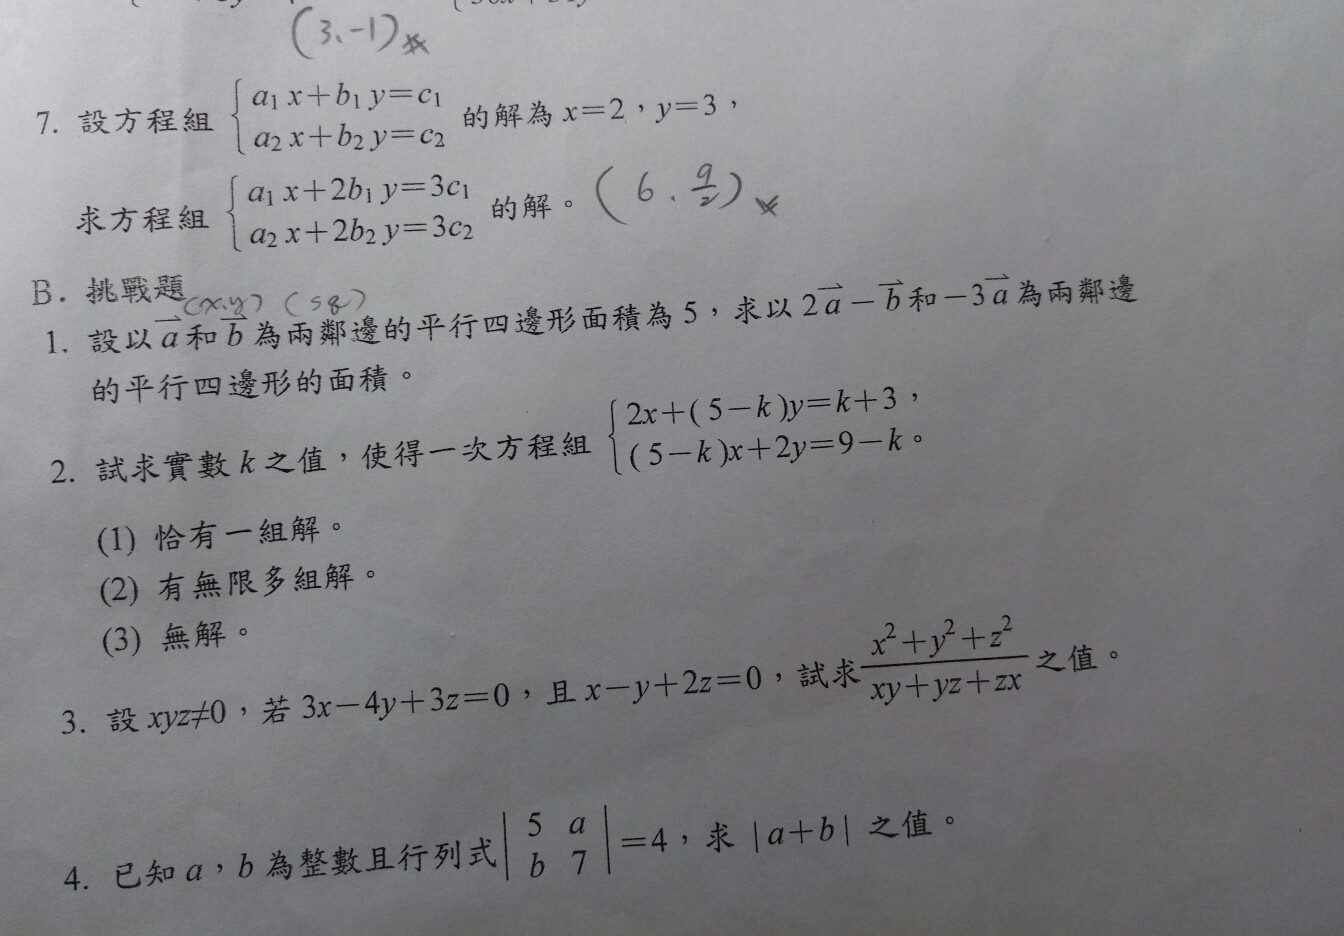 (3、-1)*
7. 設方程組 { a₁x+b₁y=c₁
a₂x+b₂y=c₂ 的解為 x=2,y=3,
求方程組 { a₁x+2b₁y=3c₁
a₂x+2b₂y=3c₂ 的解。 (6、9/2)*
B. 挑戰題
(x,y)
1. 設以 a⃗ 和 b⃗ 為兩鄰邊的平行四邊形面積為 5,求以 2a⃗-b⃗ 和 -3a⃗ 為兩鄰邊
的平行四邊形的面積。
2. 試求實數 k 之值,使得一次方程組 { 2x+(5-k)y=k+3,
(5-k)x+2y=9-k。
(1) 恰有一組解。
(2) 有無限多組解。
(3) 無解。
3. 設 xyz≠0,若 3x-4y+3z=0,且 x-y+2z=0,試求 (x²+y²+z²)/(xy+yz+zx) 之值。
4. 已知 a,b 為整數且行列式 | 5 a
b 7 | =4,求 |a+b| 之值。